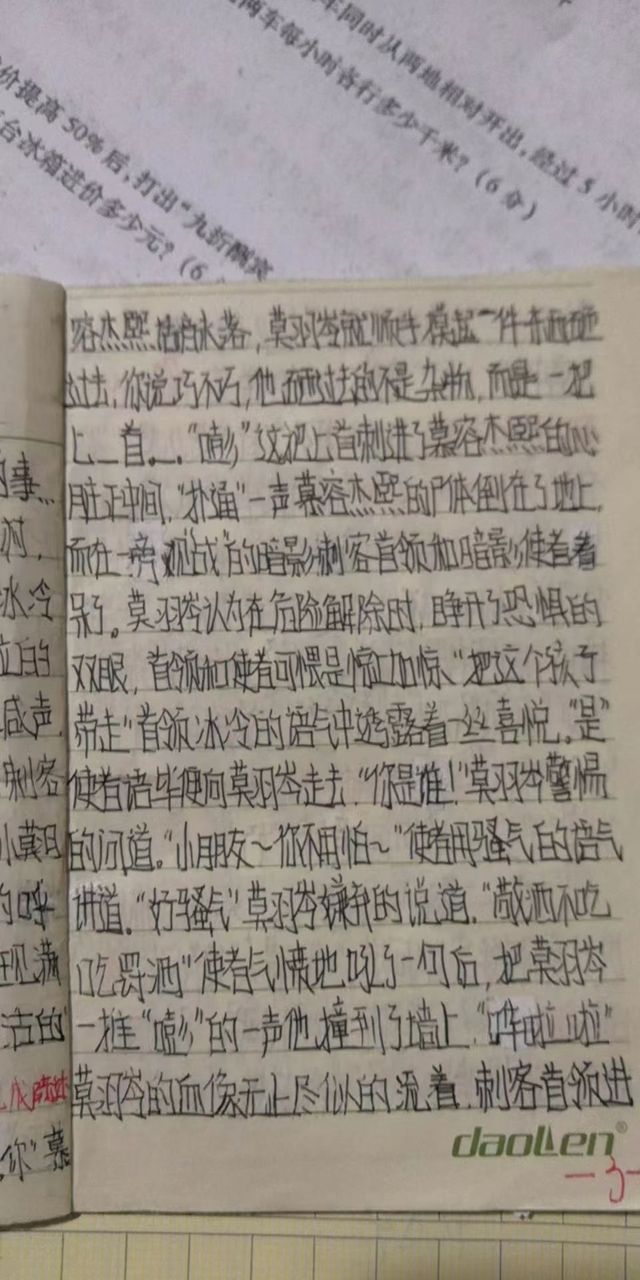 车同时从两地相对开出，经过5小时
两车每小时各行多少千米？（6分）
价提高50%后，打出“九折酬宾
台冰箱进价多少元？（6
容杰熙话音未落，莫羽岑就顺手摸起一件东西砸
过去，你说巧不巧，他砸过去的不是杂物，而是一把
匕__首__。“嘭”这把匕首刺进了慕容杰熙的心
脏正中间，“扑通”一声慕容杰熙的尸体倒在了地上，
而在一旁“观战”的暗影刺客首领和暗影使者看
呆了。莫羽岑认为在危险解除时，睁开了恐惧的
双眼，首领和使者可惧是惊上加惊、“把这个孩子
带走”首领冰冷的语气中透露着一丝喜悦。“是”
使者语毕便向莫羽岑走去“你是谁！”莫羽岑警惕
的问道。“小朋友～你不用怕～”使者用骚气的语气
讲道。“好骚气”莫羽岑嫌弃的说道。“敬酒不吃
吃罚酒”使者气愤地吼了一句后，把莫羽岑
一推“嘭”的一声他撞到了墙上“哗啦啦”
莫羽岑的血像无止尽似的流着，刺客首领进
的事
村，
冰冷
位的
减声，
刺客
小莫日
的呼
现满
活的
你”慕
daolen®
-3-